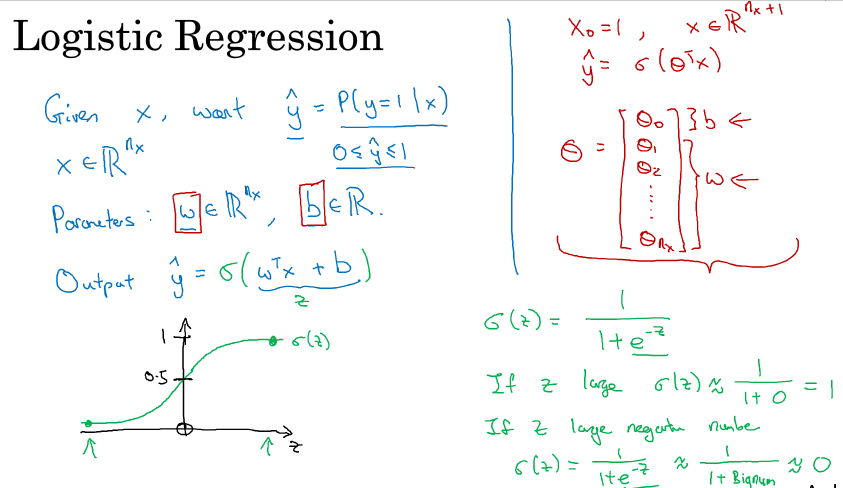 Logistic Regression
Given x, want ŷ = P(y=1|x)
x ∈ ℝ^{n_x}
0 ≤ ŷ ≤ 1
Parameters: w ∈ ℝ^{n_x}, b ∈ ℝ.
Output ŷ = σ(w^T x + b)
z
1
σ(z)
0.5
z
x_0 = 1, x ∈ ℝ^{n_x+1}
ŷ = σ(θ^T x)
θ = [θ_0 θ_1 θ_2 ⋮ θ_{n_x}]
} b ←
} w ←
σ(z) = 1 / (1 + e^{-z})
If z large σ(z) ≈ 1 / (1 + 0) = 1
If z large negative number
σ(z) = 1 / (1 + e^{-z}) ≈ 1 / (1 + Bignum) ≈ 0